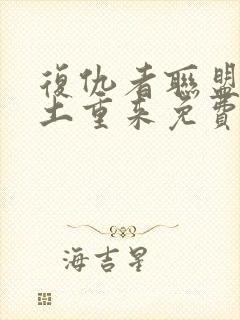 復仇者聯盟
土重來免費
海吉星